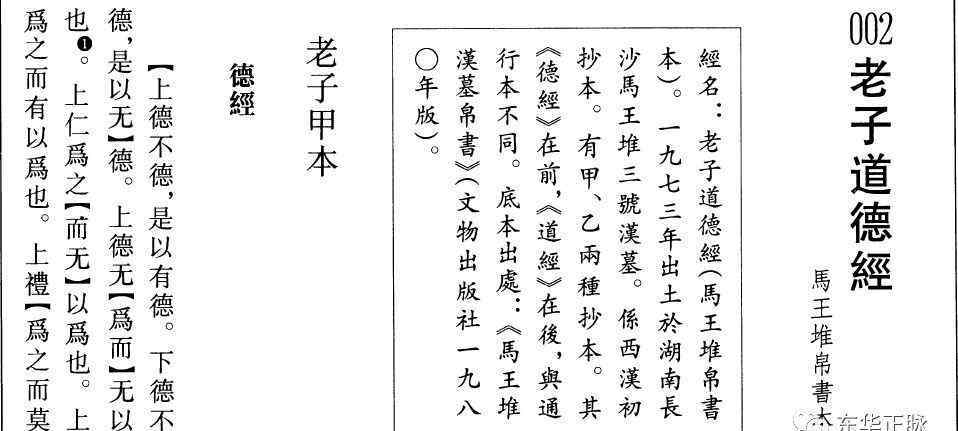 002老子道德經
馬王堆帛書本
經名：老子道德經（馬王堆帛書
本）。一九七三年出土於湖南長
沙馬王堆三號漢墓。係西漢初
抄本。有甲、乙兩種抄本。其
《德經》在前，《道經》在後，與通
行本不同。底本出處：《馬王堆
漢墓帛書》（文物出版社一九八
〇年版）。
老子甲本
德經
【上德不德，是以有德。下德不
德，是以无】德。上德无【爲而】无以
也❶。上仁爲之【而无】以爲也。上
爲之而有以爲也。上禮【爲之而莫
东华正脉